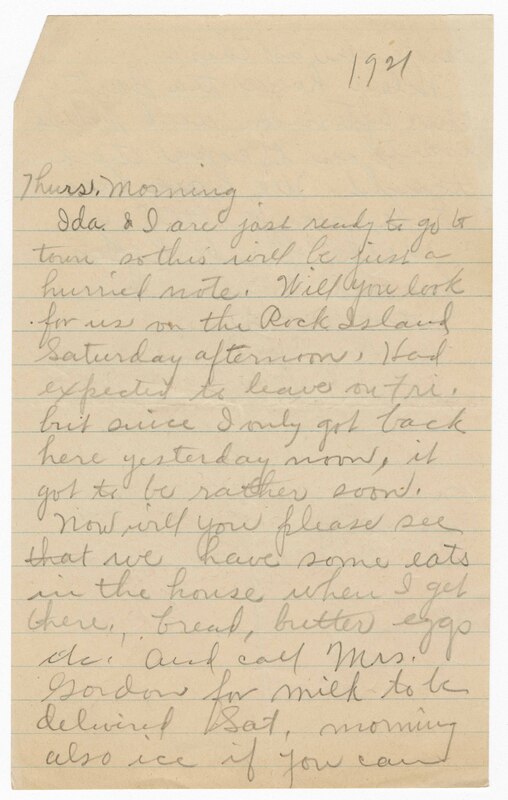 1921
Thurs. Morning
Ida & I are just ready to go to
town so this will be just a
hurried note. Will you look
for us on the Rock Island
Saturday afternoon. Had
expected to leave on Fri.
but since I only got back
here yesterday noon, it
got to be rather soon.
Now will you please see
that we have some eats
in the house when I get
there, bread, butter eggs
etc. And call Mrs.
Gordon for milk to be
delivered Sat. morning
also ice if you can